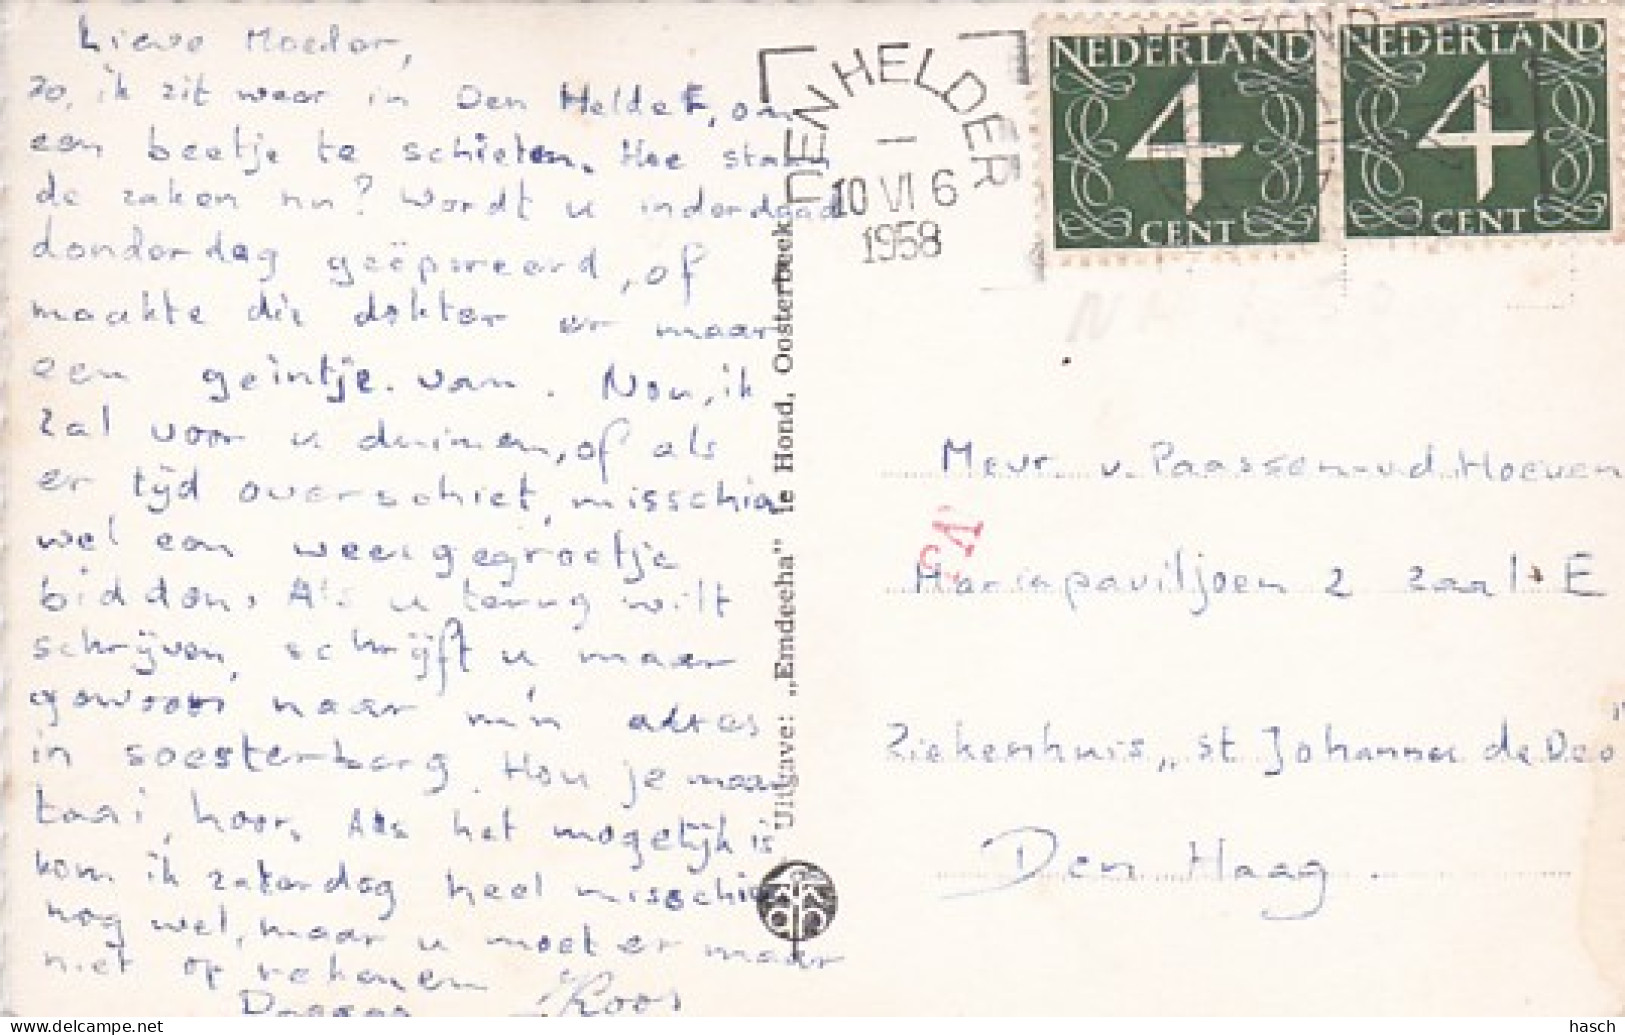 Lieve Moeder,
zo, ik zit weer in Den Helder, om
een beetje te schieten. Hoe staan
de zaken nu? Wordt u inderdaad
donderdag geöpereerd, of
maakte die dokter er maar
een geintje van. Nou, ik
zal voor u duimen, of als
er tijd overschiet, misschien
wel een weesgegroetje
bidden. Als u terug wilt
schrijven, schrijft u maar
gewoon naar m'n adres
in Soesterberg. Hou je maar
taai, hoor. Als het mogelijk is
kom ik zaterdag heel misschien
nog wel, maar u moet er maar
niet op rekenen
Koos
Uitgave: „Emdeeha" le Hond, Oosterbeek
DEN HELDER
10 VI 6
1958
NEDERLAND
4
CENT
NEDERLAND
4
CENT
Mevr. v. Paassen-v.d. Hoeven
Mariapaviljoen 2 zaal E
Ziekenhuis „St Johannes de Deo"
Den Haag.
hasch